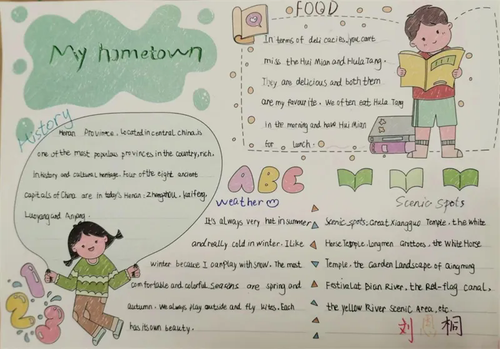 My hometown
History
Henan Province, located in central china, is
one of the most populous provinces in the country, rich
in history and cultural heritage. Four of the eight ancient
capitals of China are in today's Henan: Zhengzhou, Kaifeng,
Luoyang and Anyang.
123
FOOD
In terms of delicacies, you can't
miss the Hui Mian and Hula Tang.
They are delicious and both them
are my favourite. We often eat Hula Tang
in the morning and have Hui Mian
for lunch.
ABC
Weather
It's always very hot in summer
and really cold in winter. I like
winter because I can play with snow. The most
comfortable and colorful seasons are spring and
autumn. We always play outside and fly kites. Each
has its own beauty.
Scenic Spots
Scenic spots: Great Xiangguo Temple, the White
Horse Temple, Longmen Grottoes, the White Horse
Temple, the Garden Landscape of Qingming
Festival at Bian River, the Red-flag canal,
the yellow River Scenic Area, etc.
刘 桐